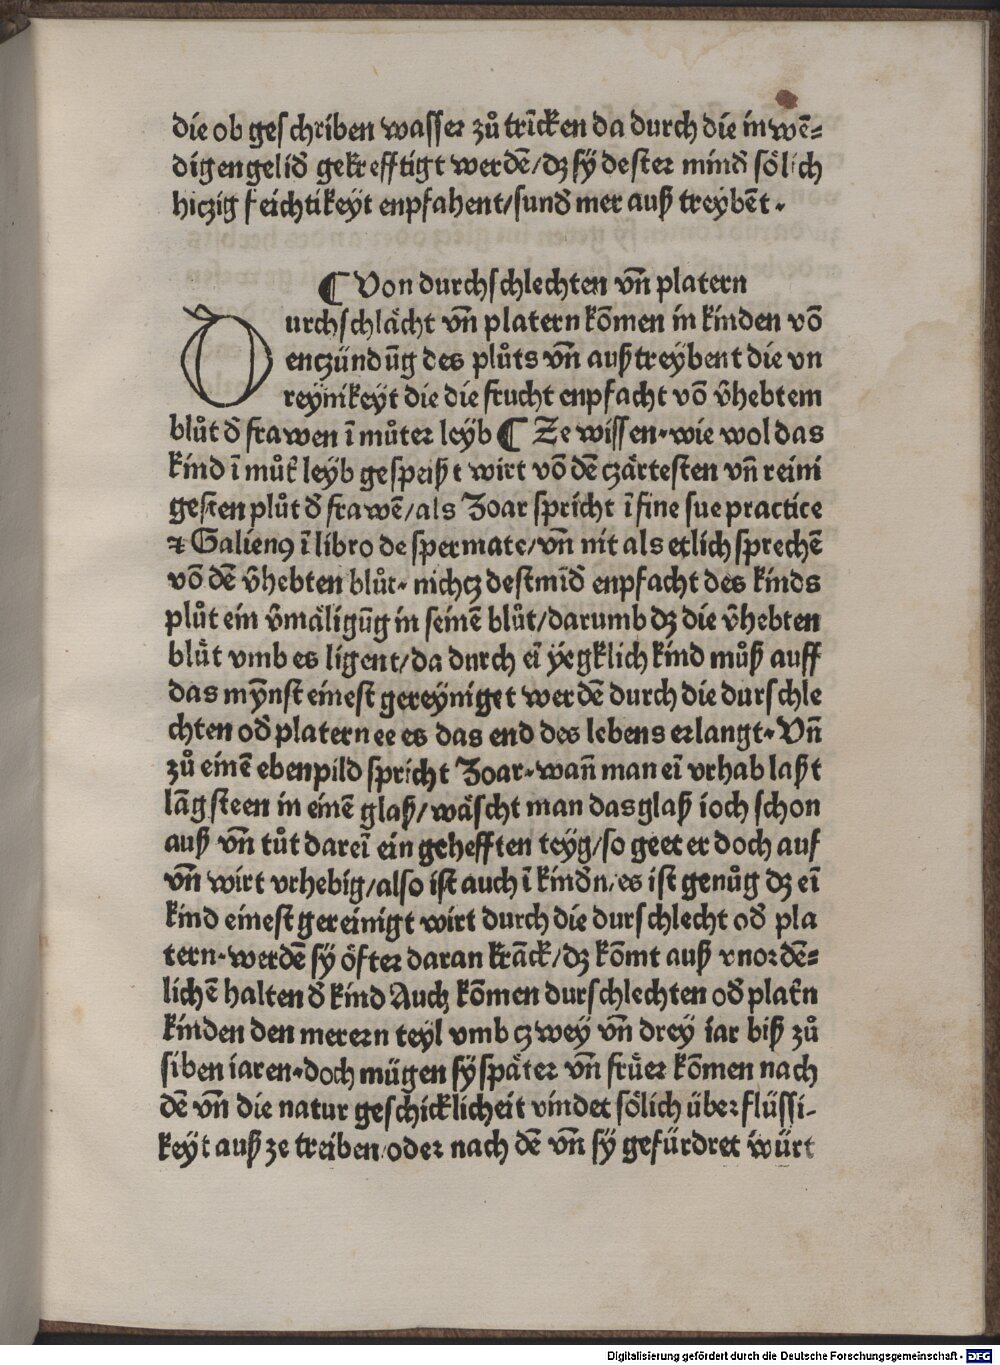 die ob geschriben wasser zů trīcken da durch die inwē=
digen gelid̄ gekrefftigt werdē/dʒ sÿ dester mind̄ sölich
hiczig feichtikeyt enpfahent/sund̄ mer auß treybēt.
¶ Von durchschlechten vn̄ platern
Durchschlächt vn̄ platern kōmen in kinden vō
enczündūg des plůts vn̄ außtreybent die vn
reynikeyt die die frucht enpfacht vō v̄hebtem
blůt d̄ frawen ī můter leyb ¶ Ze wissen.wie wol das
kind ī můt̄ leyb gespeißt wirt vō dē czärtesten vn̄ reini
gesten plůt d̄ frawē/als Zoar spricht ī fine sue practice
⁊ Galienꝰ ī libro de spermate/vn̄ nit als etlich sprechē
vō dē v̄hebten blůt. nichcz destmīd̄ enpfacht des kinds
plůt ein v̄mäligūg in seinē blůt/darumb dʒ die v̄hebten
blůt vmb es ligent/da durch eī yegklich kind můß auff
das mynst einest gereyniget werdē durch die durschle
chten od̄ platern ee es das end des lebens erlangt.Vn̄
zů einē ebenpild spricht Zoar.wan̄ man eī vrhab laßt
lāg steen in einē glaß/wäscht man das glaß ioch schon
auß vn̄ tůt dareī ein gehefften teyg/so geet er doch auf
vn̄ wirt vrhebig/also ist auch ī kindn/es ist genůg dʒ eī
kind einest gereinigt wirt durch die durschlecht od̄ pla
tern.werdē sÿ öfter daran krāck/dʒ kōmt auß vnordē=
lichē halten d̄ kind Auch kōmen durschlechten od̄ plat̄n
kinden den merern teyl vmb czwey vn̄ drey iar biß zů
siben iaren.doch mügen sÿ später vn̄ früer kōmen nach
dē vn̄ die natur geschicklicheit vindet sölich überflüssi-
keyt auß ze treiben/oder nach dē vn̄ sÿ gefürdret würt
Digitalisierung gefördert durch die Deutsche Forschungsgemeinschaft - DFG